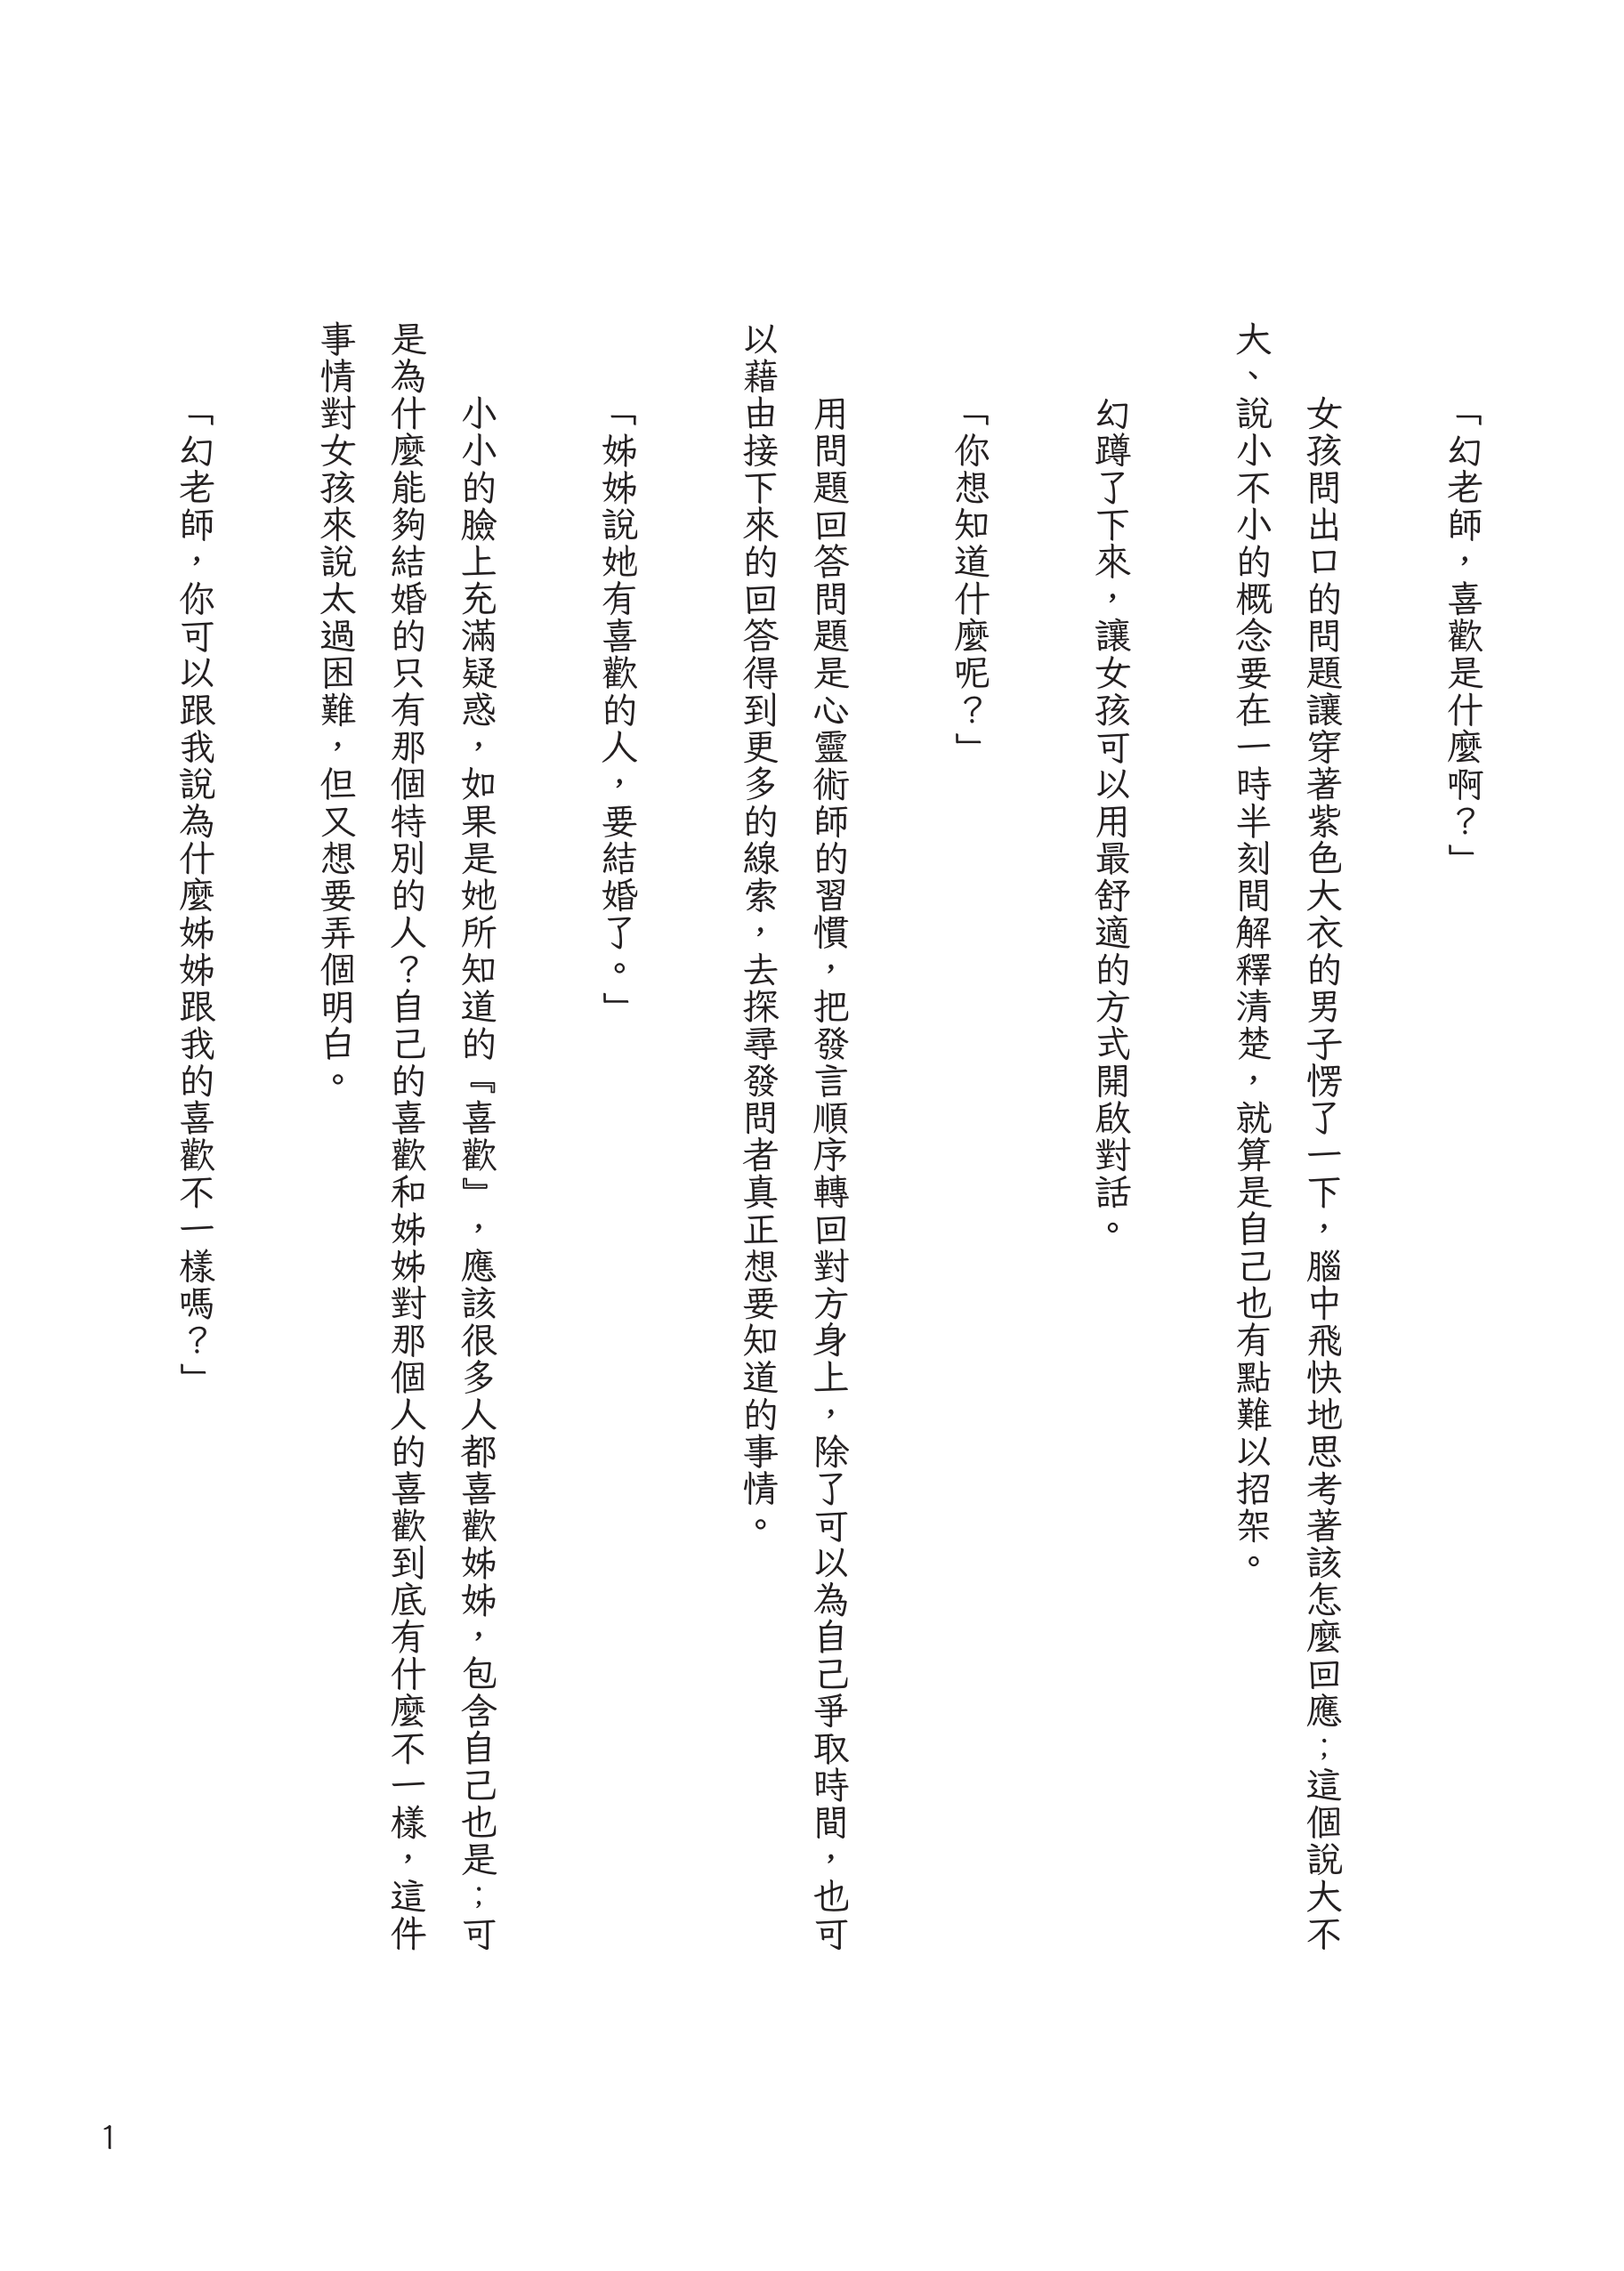 「幻老師，喜歡是什麼啊？」
女孩問出口的問題讓穿著紫色大衣的男子愣了一下，腦中飛快地思考著該怎麼回應；這個說大不
大、說小不小的概念要在一時半刻間解釋清楚，就算是自己也有點難以招架。
幻蹲了下來，讓女孩可以用最舒適的方式開啟對話。
「你想知道什麼呢？」
用問題回答問題是心靈術師的習慣，把發言順序轉回對方身上，除了可以為自己爭取時間，也可
以藉由接下來的回答得到更多的線索，去探尋發問者真正想要知道的事情。
「姊姊說她有喜歡的人，要結婚了。」
小小的臉上充滿疑惑，如果是她所知道的『喜歡』，應該很多人都喜歡姊姊，包含自己也是；可
是為什麼能夠結婚的只有那個特別的人？自己的喜歡和姊姊對那個人的喜歡到底有什麼不一樣，這件
事情對女孩來說太過困難，但又想要弄個明白。
「幻老師，你可以跟我說為什麼姊姊跟我的喜歡不一樣嗎？」
1